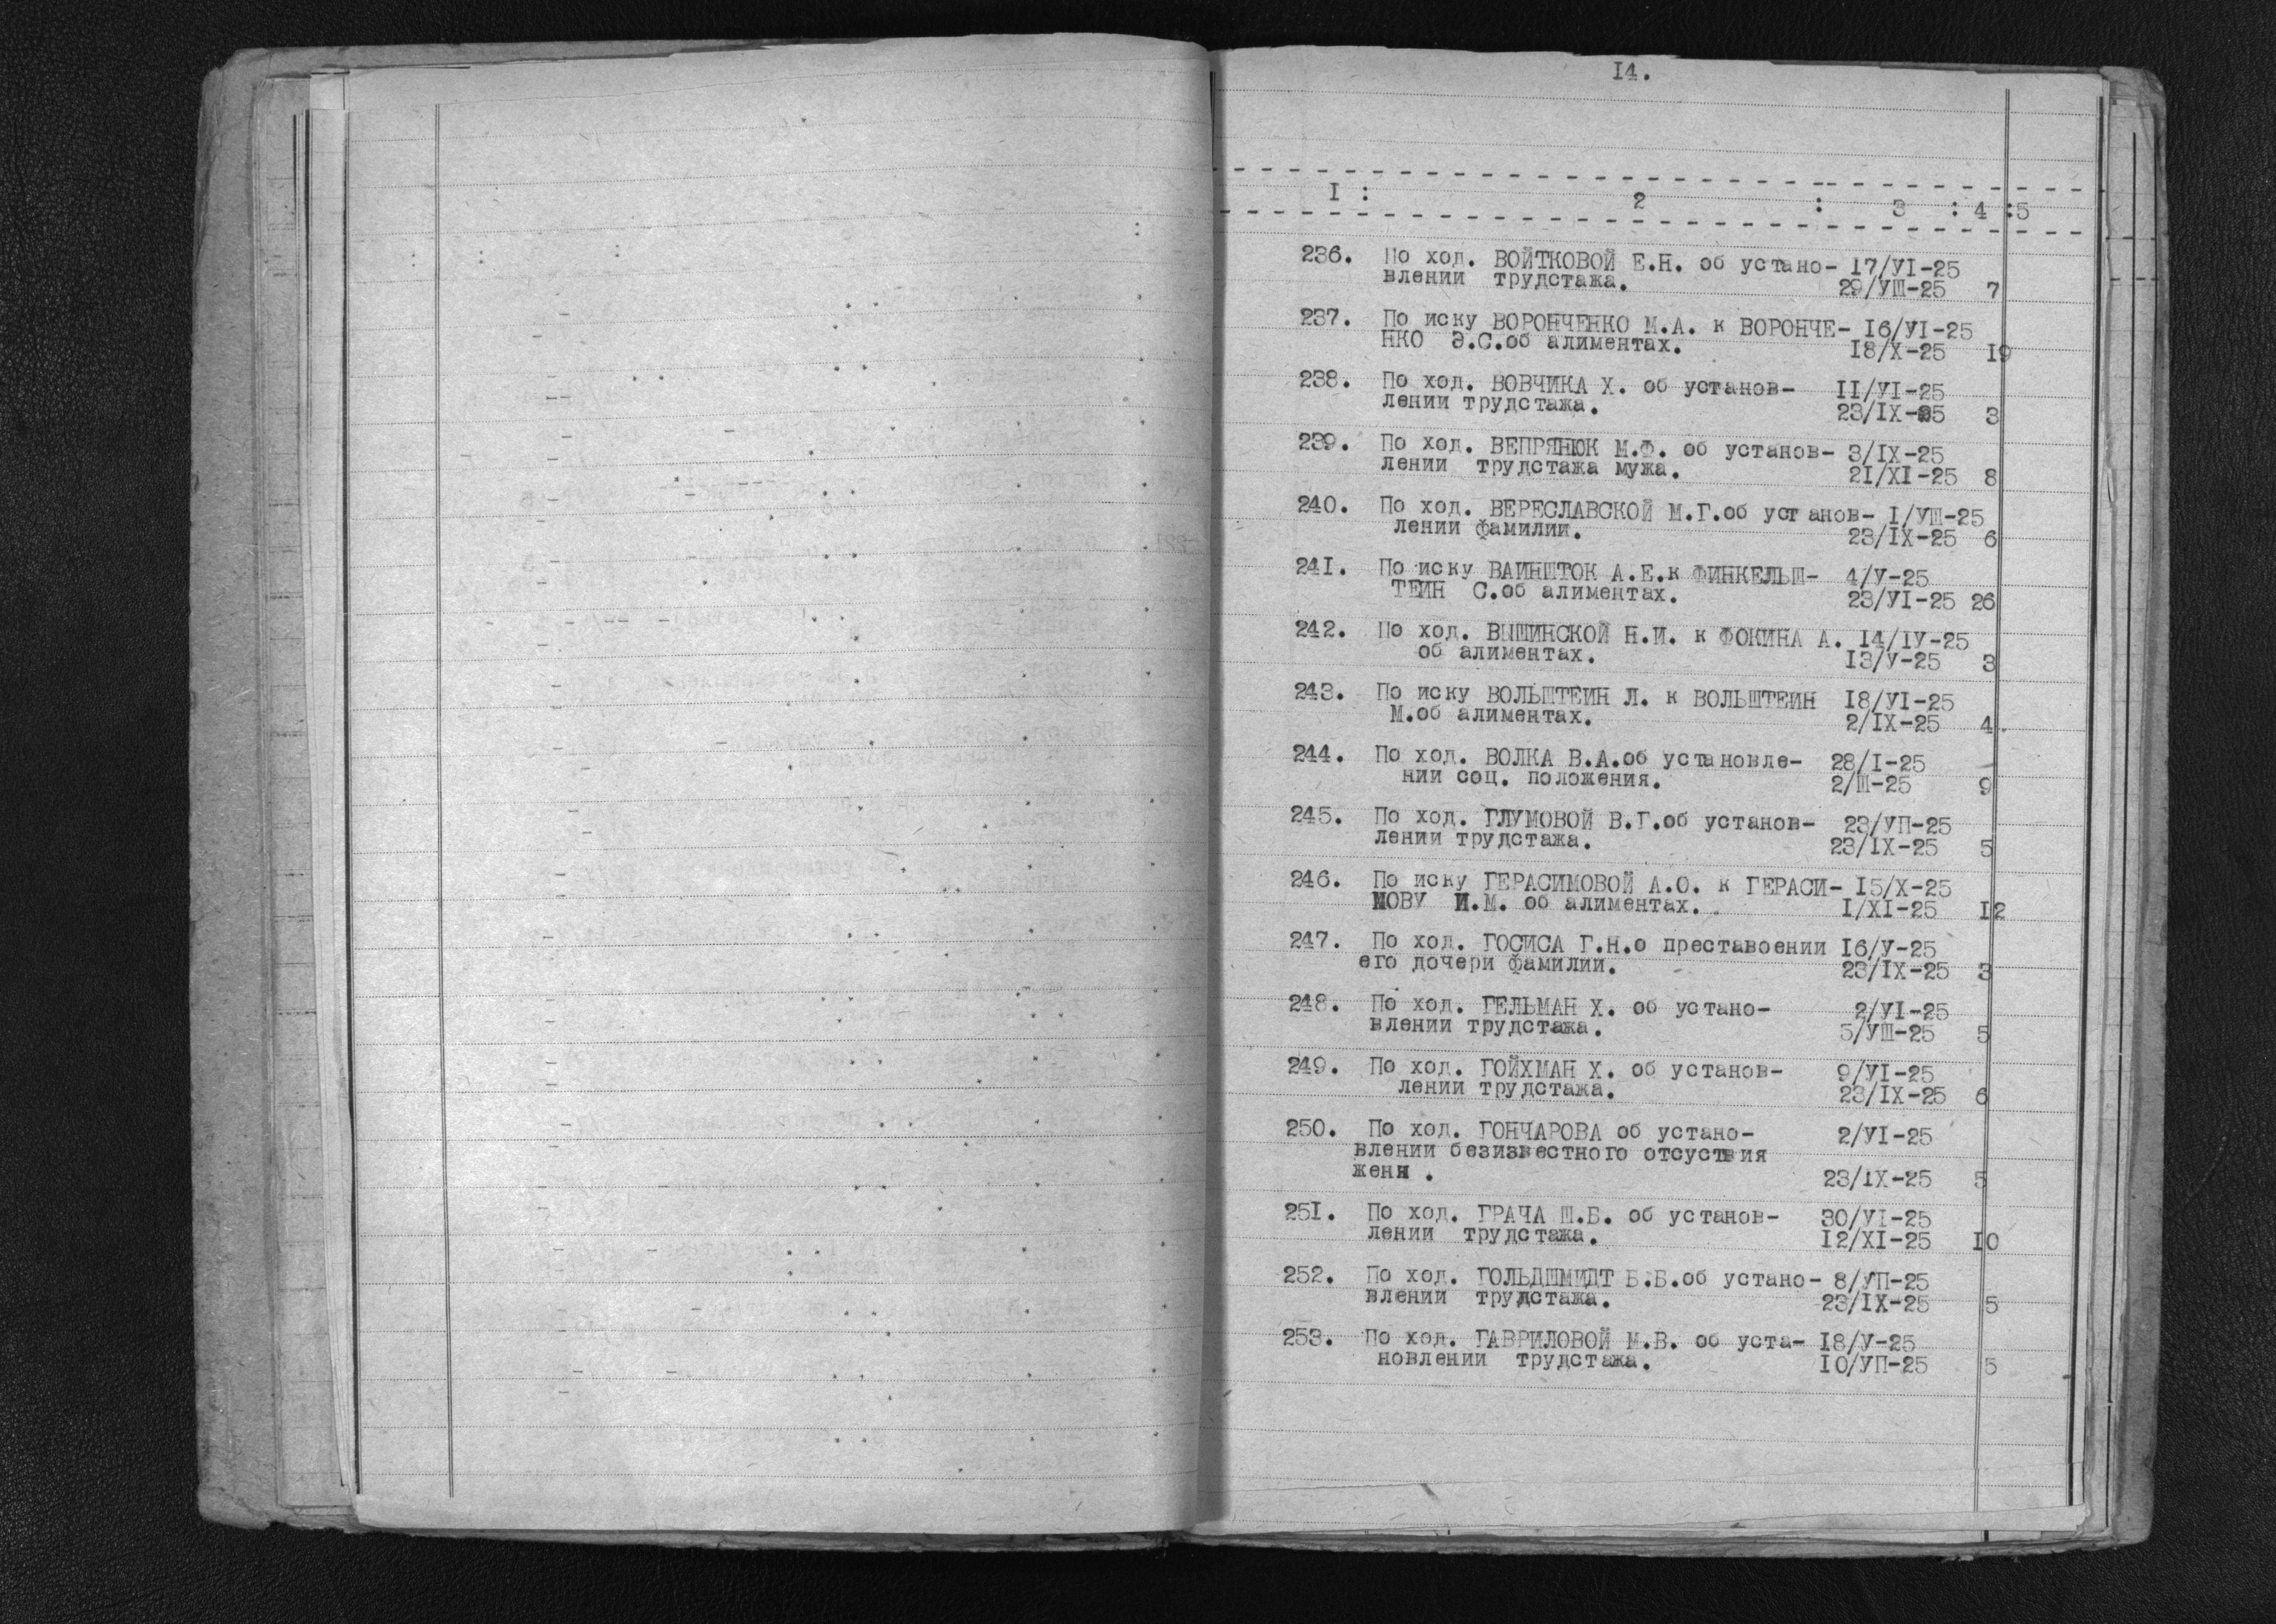 I4.
I : 2 : 3 : 4 :5
236. По ход. ВОЙТКОВОЙ Е.Н. об устано- I7/УI-25
влении трудстажа. 29/УШ-25 7
237. По иску ВОРОНЧЕНКО М.А. к ВОРОНЧЕ- I6/УI-25
НКО Э.С.об алиментах. I8/X-25 I9
238. По ход. ВОВЧИКА Х. об установ- II/УI-25
лении трудстажа. 23/IX-25 3
239. По ход. ВЕПРЯНЮК М.Ф. об установ- 3/IX-25
лении трудстажа мужа. 2I/XI-25 8
240. По ход. ВЕРЕСЛАВСКОЙ М.Г.об установ- I/УШ-25
лении фамилии. 23/IX-25 6
24I. По иску ВАИНШТОК А.Е.к ФИНКЕЛЬШ- 4/У-25
ТЕИН С.об алиментах. 23/УI-25 26
242. По ход. ВЫШИНСКОЙ Н.И. к ФОКИНА А. I4/IУ-25
об алиментах. I3/У-25 3
243. По иску ВОЛЬШТЕИН Л. к ВОЛЬШТЕИН I8/УI-25
М.об алиментах. 2/IX-25 4.
244. По ход. ВОЛКА В.А.об установле- 28/I-25
нии соц. положения. 2/Ш-25 9
245. По ход. ГЛУМОВОЙ В.Г.об установ- 23/УП-25
лении трудстажа. 23/IX-25 5
246. По иску ГЕРАСИМОВОЙ А.О. к ГЕРАСИ- I5/X-25
МОВУ И.М. об алиментах. I/XI-25 I2
247. По ход. ГОСИСА Г.Н.о преставоении I6/У-25
его дочери фамилии. 23/IX-25 3
248. По ход. ГЕЛЬМАН Х. об устано- 2/УI-25
влении трудстажа. 5/УШ-25 5
249. По ход. ГОЙХМАН Х. об установ- 9/УI-25
лении трудстажа. 23/IX-25 6
250. По ход. ГОНЧАРОВА об устано- 2/УI-25
влении безизвестного отсуствия
жены . 23/IX-25 5
25I. По ход. ГРАЧА Ш.Б. об установ- 30/УI-25
лении трудстажа. I2/XI-25 I0
252. По ход. ГОЛЬДШМИДТ Б.Б.об устано- 8/УП-25
влении трудстажа. 23/IX-25 5
253. По ход. ГАВРИЛОВОЙ М.В. об уста- I8/У-25
новлении трудстажа. I0/УП-25 5